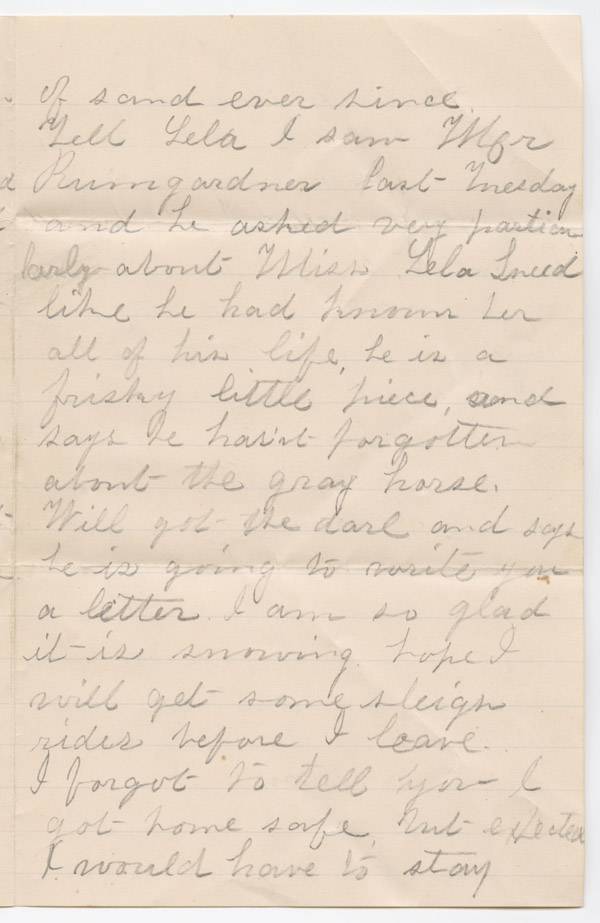 of sand ever since.
Tell Lela I saw Mgr
Rumgardner last Tuesday
and he asked very particu
larly about Miss Lela Sneed
like he had known her
all of his life, he is a
frisky little piece, and
says he has'nt forgotten
about the gray horse.
Will got the and says
he is going to write you
a letter. I am so glad
it is snowing. hope I
will get some sleigh
rides before I leave.
I forgot to tell you I
got home safe, but expected
I would have to stay